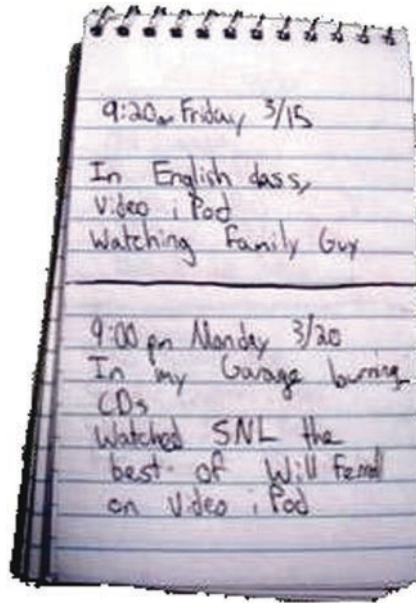 9:20am Friday 3/15
In English class,
Video iPod
Watching Family Guy
9:00 pm Monday 3/20
In my Garage burning
CDs
Watched SNL the
best of Will Ferrell
on Video iPod